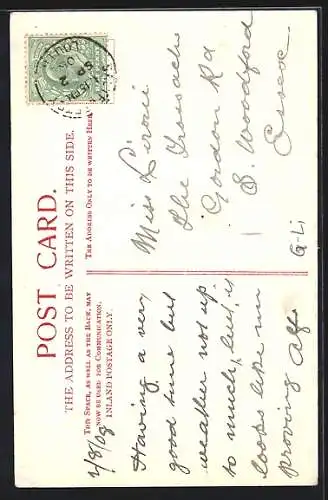 POST CARD.
THE ADDRESS TO BE WRITTEN ON THIS SIDE.
THIS SPACE, AS WELL AS THE BACK, MAY
NOW BE USED FOR COMMUNICATION.
INLAND POSTAGE ONLY.
THE ADDRESS ONLY TO BE WRITTEN HERE.
SP 2
2/9/08
Having a very
good time but
weather not up
to much, but is
looks like
proving Alf
Miss
The
Gordon Rd
S. Woodford
Essex
G-Li